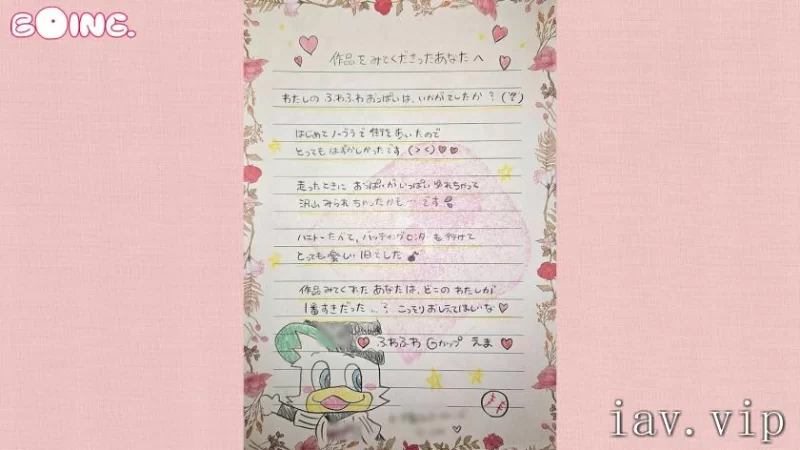 BOING.
作品をみてくださったあなたへ
わたしの ふわふわおっぱいは、いかがでしたか?
はじめてノーブラで 街を歩いたので
とってもはずかしかったです(><)♥♥
走ったときに おっぱいがいっぱい ゆれちゃって
沢山みられちゃったかも…です
バッティングセンターも行けて
とっても楽しい1日でした
作品みてくれた あなたは、どこの わたしが
1番すきだった…? こっそりおしえてほしいな♡
♥ ふわふわ Gカップ えま ♥
iav.vip